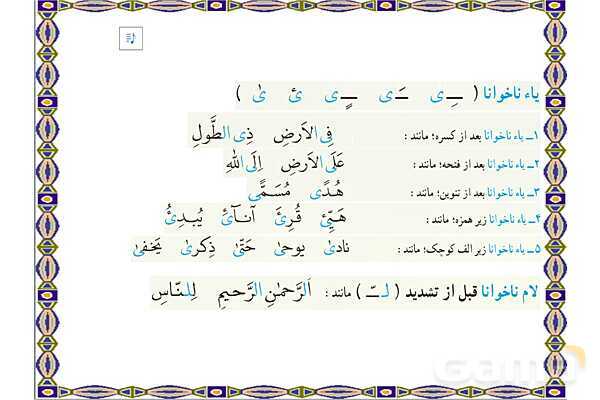 یاء ناخوانا ( ـِـ ی ـَـ ی ـٍـ ی ئ یٰ )
۱ـ یاء ناخوانا بعد از کسره؛ مانند : فِی الاَرضِ ذِی الطَّولِ
۲ـ یاء ناخوانا بعد از فتحه؛ مانند : عَلَی الاَرضِ اِلَی اللّٰهِ
۳ـ یاء ناخوانا بعد از تنوین؛ مانند : هُدًی مُسَمًّی
۴ـ یاء ناخوانا زیر همزه؛ مانند : هَیِّئ قُرِئَ اَنـَآئِ یُبدِئُ
۵ـ یاء ناخوانا زیر الف کوچک؛ مانند : نادیٰ یوحیٰ حَتّیٰ ذِکریٰ یَخفیٰ
لام ناخوانا قبل از تشدید ( لـ ـّـ ) مانند : اَلرَّحمٰنِ الرَّحیمِ لِلنّاسِ
Gama